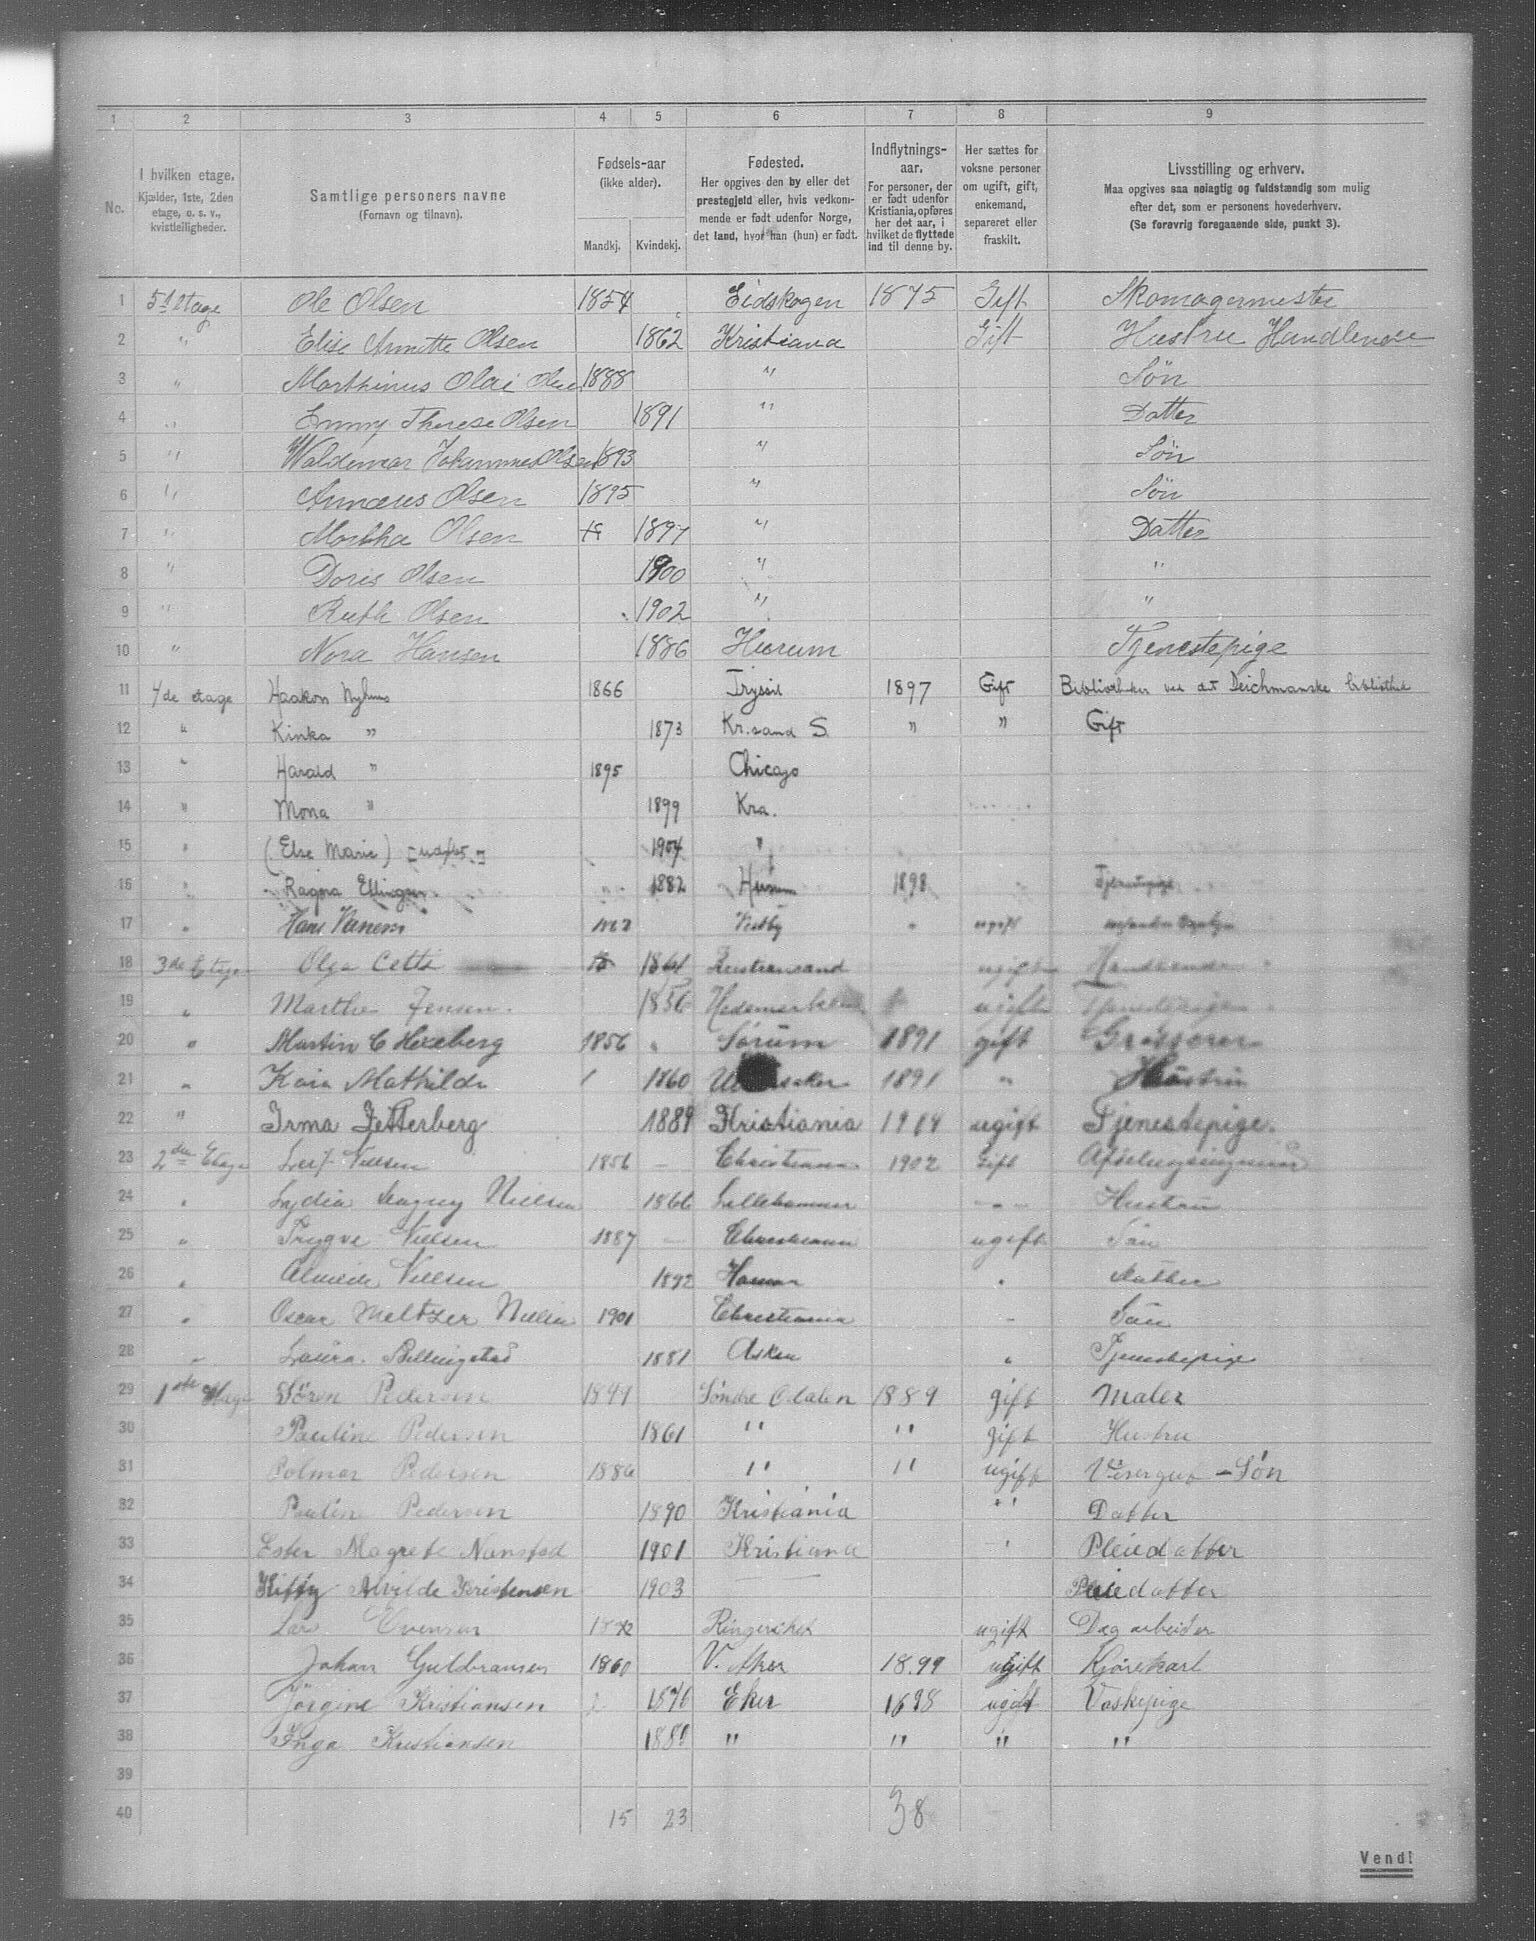 1 2 3 4 5 6 7 8 9
No.
I hvilken etage.
Kjælder, 1ste, 2den
etage, o. s. v.,
kvistleiligheder.
Samtlige personers navne
(Fornavn og tilnavn).
Fødsels-aar
(ikke alder).
Mandkj. Kvindekj.
Fødested.
Her opgives den by eller det
prestegjeld eller, hvis vedkom-
mende er født udenfor Norge,
det land, hvor han (hun) er født.
Indflytnings-
aar.
For personer, der
er født udenfor
Kristiania, opføres
her det aar, i
hvilket de flyttede
ind til denne by.
Her sættes for
voksne personer
om ugift, gift,
enkemand,
separeret eller
fraskilt.
Livsstilling og erhverv.
Maa opgives saa nøiagtig og fuldstændig som mulig
efter det, som er personens hovederhverv.
(Se forøvrig foregaaende side, punkt 3).
1 5t etage Ole Olsen 1854 Eidskogen 1875 Gift Skomagermester
2 " Elise Annette Olsen 1862 Kristiana Gift Hustru Handlende
3 " Marthinus Olai Olsen 1888 " Søn
4 " Emmy Therese Olsen 1891 " Datter
5 " Waldemar Johannes Olsen 1893 " Søn
6 " Annæus Olsen 1895 " Søn
7 " Martha Olsen 1897 " Datter
8 " Doris Olsen 1900 " "
9 " Ruth Olsen 1902 " "
10 " Nora Hansen 1886 Hurum Tjenestepige
11 4de etage Haakon Nyhuus 1866 Trysil 1897 Gift Bibliotheker ved det Deichmanske bibliothek
12 " Kinka " 1873 Kr.sand S. " " Gift
13 " Harald " 1895 Chicago
14 " Mona " 1899 Kra.
15 " (Else Marie) 1904 "
16 " Ragna Ellingsen 1882 Hurum 1898 Tjenestepige
17 " Hans Vestby " ugift
18 3de Etage Olga Cetti 1864 Kristiansand ugift Handlende
19 " Marthe Jensen 1856 Hedemarken ugift Tjenestepige
20 " Martin C Hexeberg 1856 " Sørum 1891 gift Grosserer
21 " Kaia Mathilde 1860 1891 " Hustru
22 " Irma Zetterberg 1889 Kristiania 1904 ugift Tjenestepige.
23 2den Etage Leif Nielsen 1856 – Christiania 1902 Gift Afdelingsingeniør
24 " Lydia Magny Nielsen 1866 Lillehammer – " – Hustru
25 " Trygve Nielsen 1887 – Christiania ugift Søn
26 " Nielsen 1892 Hamar " Datter
27 " Oscar Meltzer Nielsen 1901 Christiania – Søn
28 " Laura Billingstad 1881 Asker " Tjenestepige
29 1ste Etage Søren Pedersen Søndre Odalen 1889 gift Maler
30 Pauline Pedersen 1861 " " gift Hustru
31 Polmar Pedersen 1886 " " ugift Visergut – Søn
32 Pauline Pedersen 1890 Kristiania " Datter
33 Ester Magrete Nanstad 1901 Kristiana ' Pleiedatter
34 Kitty Alvilde Kristensen 1903 Pleiedatter
35 Lars Evensen Ringeriket ugift Dagarbeider
36 Johan Gulbransen 1860 V. Aker 1899 ugift Kjørekarl
37 Jørgine Kristiansen Eker 1898 ugift Vaskepige
38 Inga Kristiansen " " " "
39
40 15 23 38
Vend!